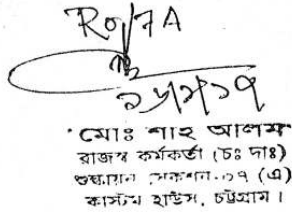 RO/7A
১৬/৯/১৭
মোঃ শাহ আলম
রাজস্ব কর্মকর্তা (চঃ দাঃ)
শুল্কায়ন সেকশন-০৭ (এ)
কাস্টম হাউস, চট্টগ্রাম।